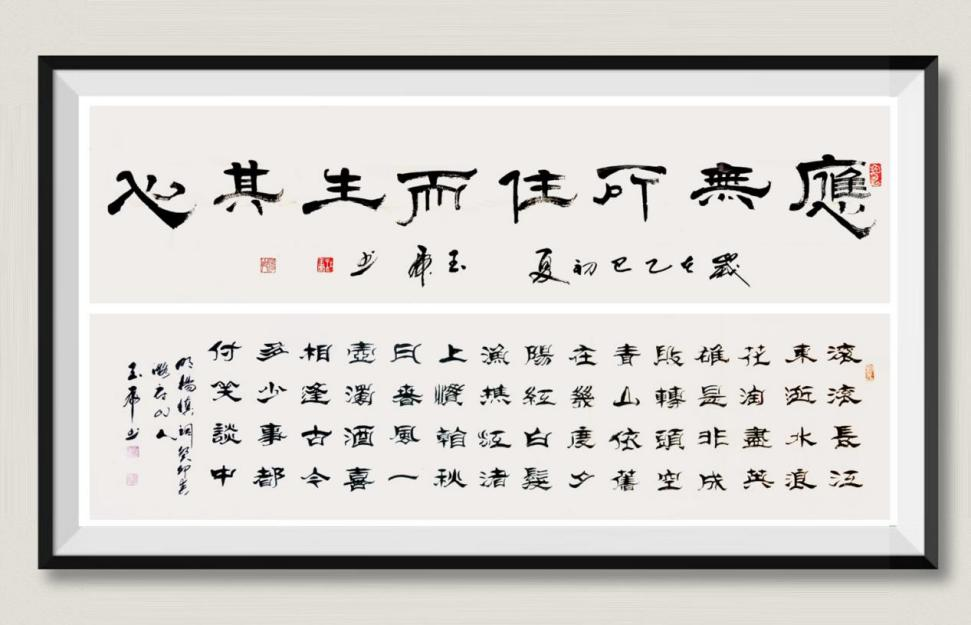 應無所住而生其心
歲在乙巳初夏 玉 书
滾滾長江
東逝水浪
花淘盡英
雄是非成
敗轉頭空
青山依舊
在幾度夕
陽紅白髮
漁樵江渚
上慣看秋
月春風一
壺濁酒喜
相逢古今
多少事都
付笑談中
明楊慎詞癸卯春
玉 书